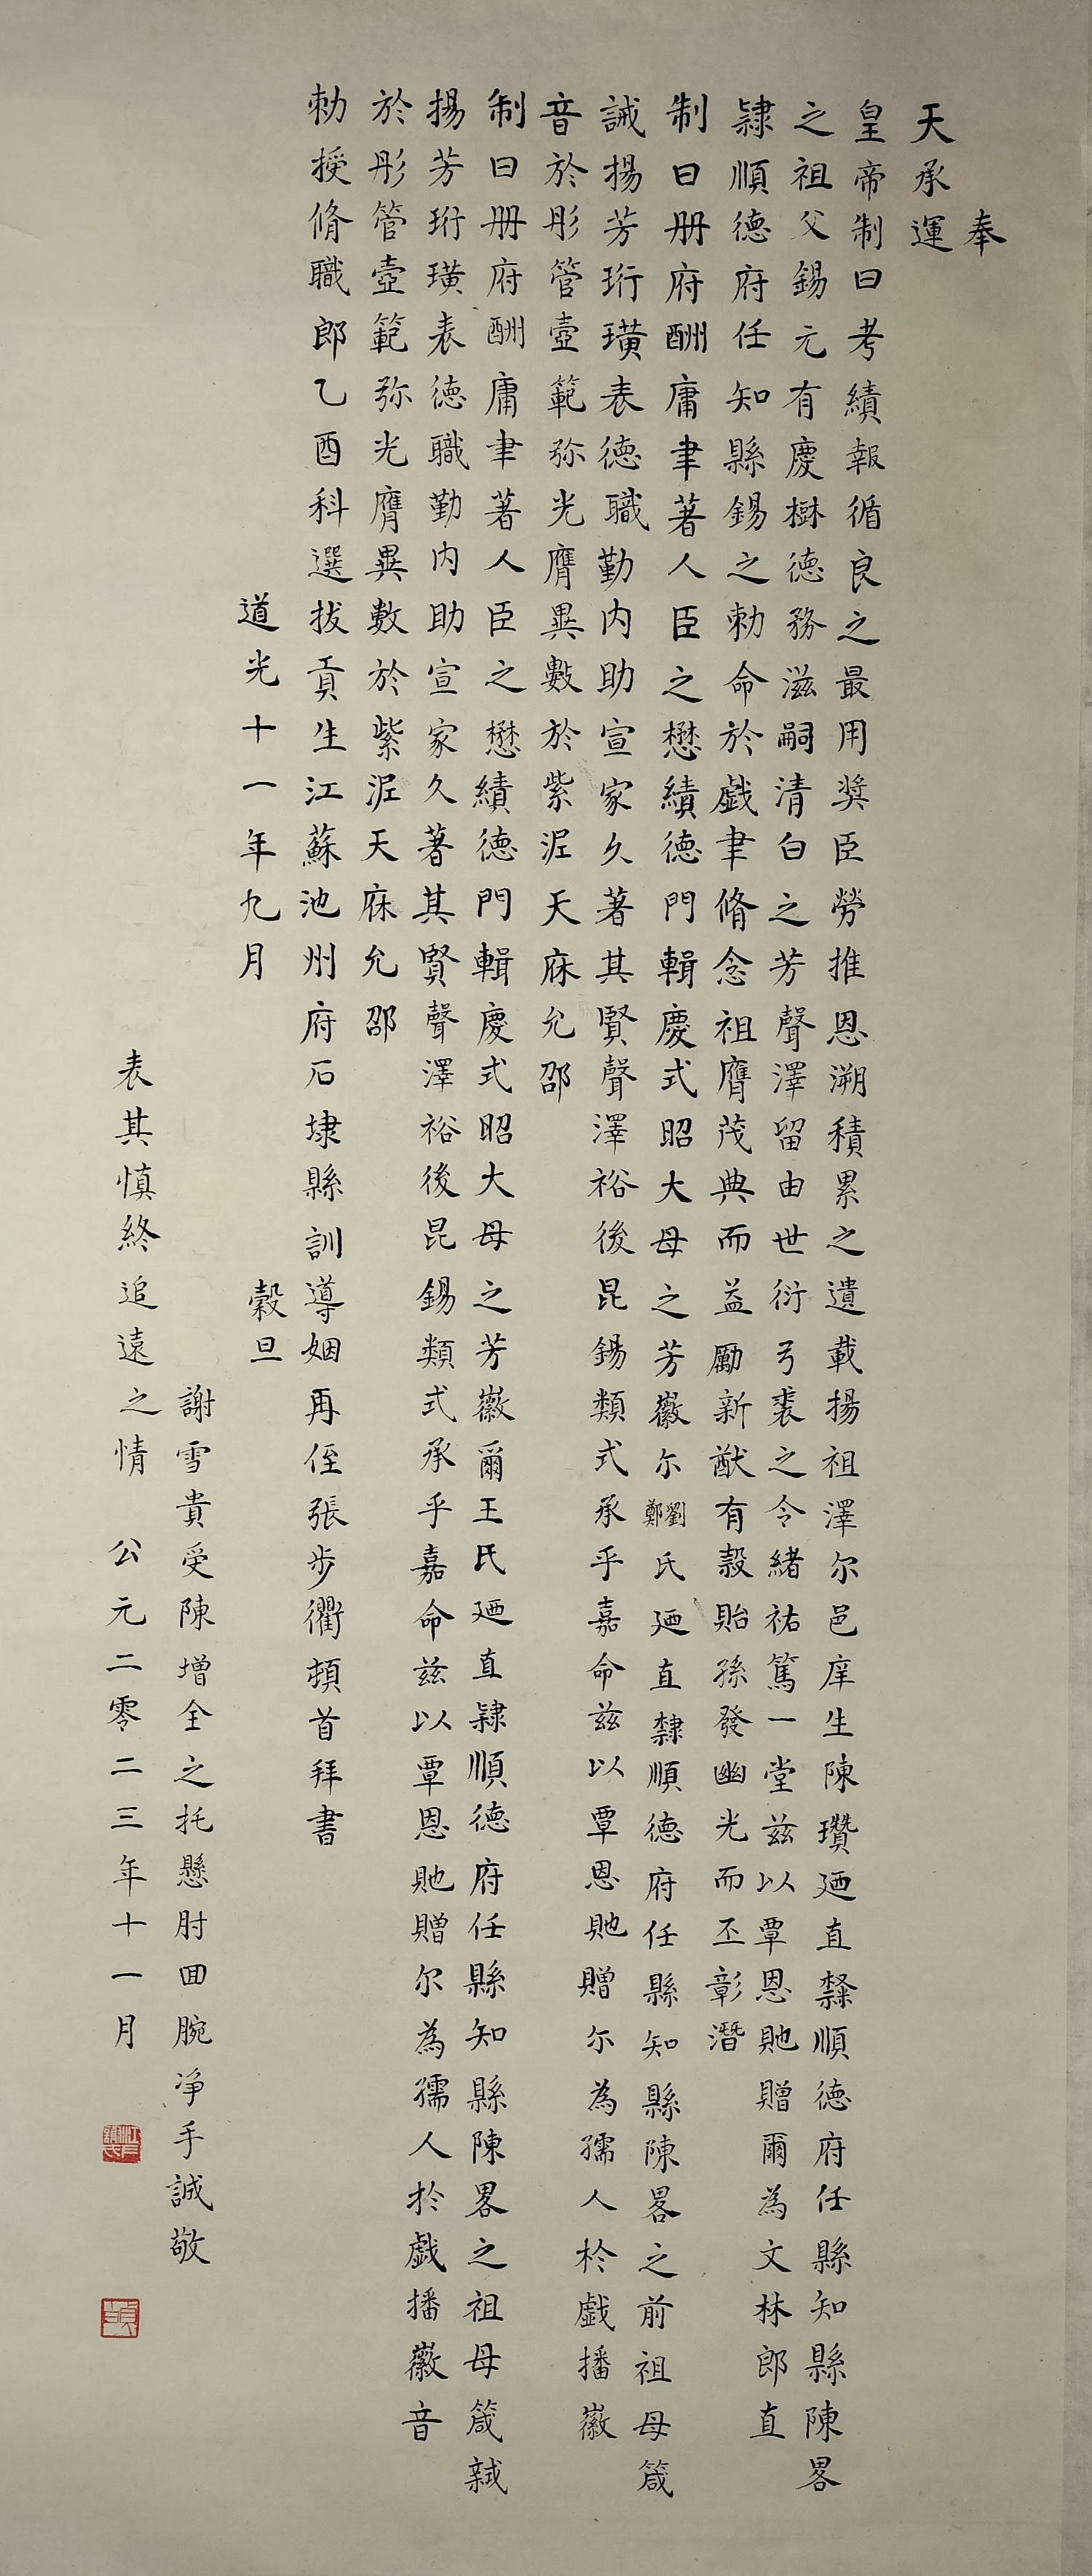 奉
天承運
皇帝制曰考績報循良之最用獎臣勞推恩溯積累之遺載揚祖澤尔邑庠生陳瓚廼直隸順德府任縣知縣陳畧
之祖父錫元有慶樹德務滋嗣清白之芳聲澤留由世衍弓裘之令緒祐篤一堂兹以覃恩貤贈爾為文林郎直
隸順德府任知縣錫之勅命於戲聿脩念祖膺茂典而益勵新猷有榖貽孫發幽光而丕彰潛
制曰册府酬庸聿著人臣之懋績德門輯慶式昭大母之芳徽尔劉鄭氏廼直隸順德府任縣知縣陳畧之前祖母箴
誡揚芳珩璜表德職勤内助宣家久著其賢聲澤裕後昆錫類式承乎嘉命兹以覃恩貤贈尔為孺人於戲播徽
音於彤管壼範弥光膺異數於紫泥天庥允邵
制曰册府酬庸聿著人臣之懋績德門輯慶式昭大母之芳徽爾王氏廼直隸順德府任縣知縣陳畧之祖母箴誡
揚芳珩璜表德職勤内助宣家久著其賢聲澤裕後昆錫類式承乎嘉命兹以覃恩貤贈尔為孺人於戲播徽音
於彤管壼範弥光膺異數於紫泥天庥允邵
勅授脩職郎乙酉科選拔貢生江蘇池州府石埭縣訓導姻再侄張步衢頓首拜書
道光十一年九月
穀旦
謝雪貴受陳增全之托懸肘回腕净手誠敬
表其慎終追遠之情
公元二零二三年十一月